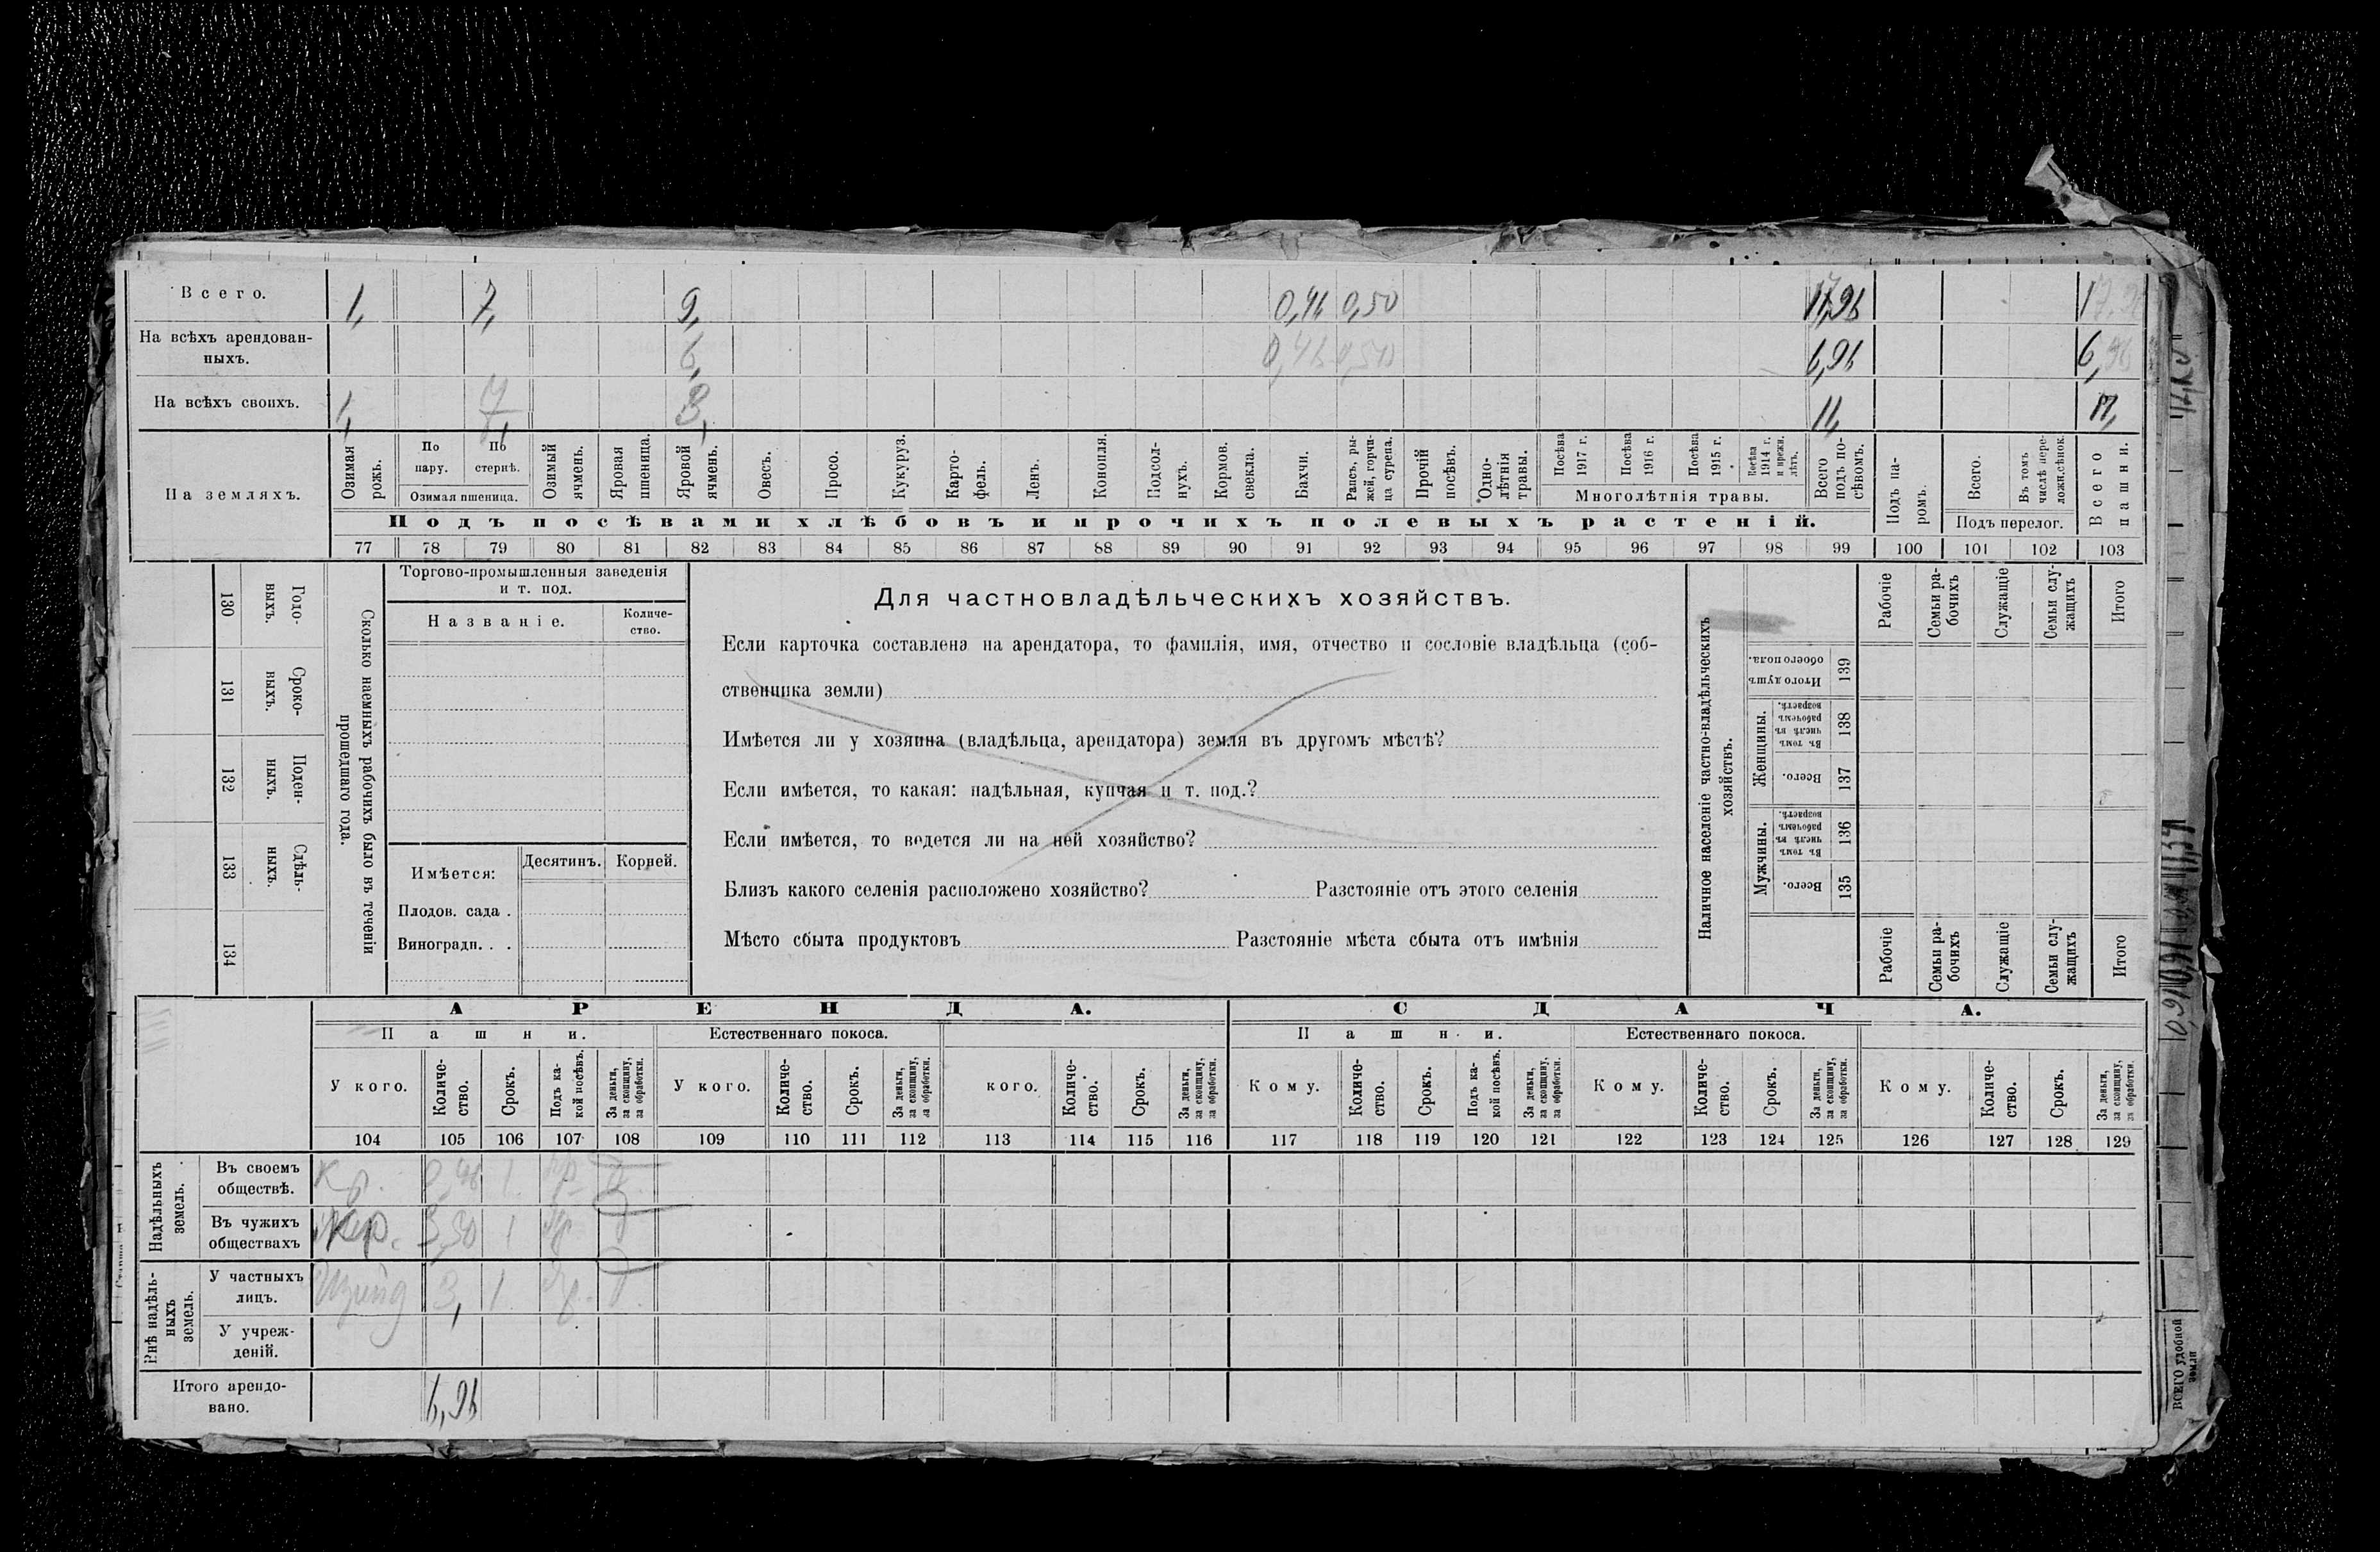 Всего. 1, 7, 9, 0,46 0,50 17,96 17,96
На всѣхъ арендован-
ныхъ. 6, 0,46 0,50 6,96 6,96
На всѣхъ своихъ. 1, 7, 3, 11, 11,
На земляхъ.
Озимая рожь.
По пару.
По стернѣ.
Озимая пшеница.
Озимый ячмень.
Яровая пшеница.
Яровой ячмень.
Овесъ.
Просо.
Кукуруз.
Карто-
фель.
Ленъ.
Конопля.
Подсол-
нухъ.
Кормов. свекла.
Бахчи.
Рапсъ, ры-
жей, горчи-
ца сурепа.
Прочій посѣвъ.
Одно-
лѣтнія
травы.
Посѣва 1917 г.
Посѣва 1916 г.
Посѣва 1915 г.
Посѣва 1914 г. и прежн. лѣтъ.
Многолѣтнія травы.
Всего подъ по-
сѣвомъ.
Подъ па-
ромъ.
Всего.
Въ томъ числѣ пере-
ложн.сѣнок.
Подъ перелог.
Всего пашни.
Подъ посѣвами хлѣбовъ и прочихъ полевыхъ растеній.
77 78 79 80 81 82 83 84 85 86 87 88 89 90 91 92 93 94 95 96 97 98 99 100 101 102 103
Сколько наемныхъ рабочихъ было въ теченіи
прошедшаго года.
Годо-
ныхъ.
130
Сроко-
ныхъ.
131
Поден-
ныхъ.
132
Сдѣль-
ныхъ.
133
134
Торгово-промышленныя заведенія
и т. под.
Названіе.
Количе-
ство.
Имѣется:
Десятинъ.
Корней.
Плодов. сада .
Виноградн. . .
Для частновладѣльческихъ хозяйствъ.
Если карточка составлена на арендатора, то фамилія, имя, отчество и сословіе владѣльца (соб-
ственника земли)
Имѣется ли у хозяина (владѣльца, арендатора) земля въ другомъ мѣстѣ?
Если имѣется, то какая: надѣльная, купчая и т. под.?
Если имѣется, то ведется ли на ней хозяйство?
Близъ какого селенія расположено хозяйство? Разстояніе отъ этого селенія
Мѣсто сбыта продуктовъ Разстояніе мѣста сбыта отъ имѣнія
Наличное населеніе частно-владѣльческихъ
хозяйствъ.
Рабочіе
Семьи ра-
бочихъ
Служащіе
Семьи слу-
жащихъ
Итого
Итого душъ
обоего пола.
139
Женщины.
Въ томъ числѣ въ рабочемъ возрастѣ.
138
Всего.
137
Мужчины.
Въ томъ числѣ въ рабочемъ возрастѣ.
136
Всего.
135
Рабочіе
Семьи ра-
бочихъ
Служащіе
Семьи слу-
жащихъ
Итого
АРЕНДА. СДАЧА.
Пашни. Естественнаго покоса. Пашни. Естественнаго покоса.
У кого.
Количе-
ство.
Срокъ.
Подъ ка-
кой посѣвъ.
За деньги,
за скопщину,
за обработки.
У кого.
Количе-
ство.
Срокъ.
За деньги,
за скопщину,
за обработки.
кого.
Количе-
ство.
Срокъ.
За деньги,
за скопщину,
за обработки.
Кому.
Количе-
ство.
Срокъ.
Подъ ка-
кой посѣвъ.
За деньги,
за скопщину,
за обработки.
Кому.
Количе-
ство.
Срокъ.
За деньги,
за скопщину,
за обработки.
Кому.
Количе-
ство.
Срокъ.
За деньги,
за скопщину,
за обработки.
104 105 106 107 108 109 110 111 112 113 114 115 116 117 118 119 120 121 122 123 124 125 126 127 128 129
Надѣльныхъ
земель.
Въ своемъ
обществѣ. Кр. 0,46 1
Въ чужихъ
обществахъ Кр. 3,50 1
Внѣ надѣль-
ныхъ
земель.
У частныхъ
лицъ. 3, 1
У учреж-
деній.
Итого арендо-
вано. 6,96
ВСЕГО удобной
земли